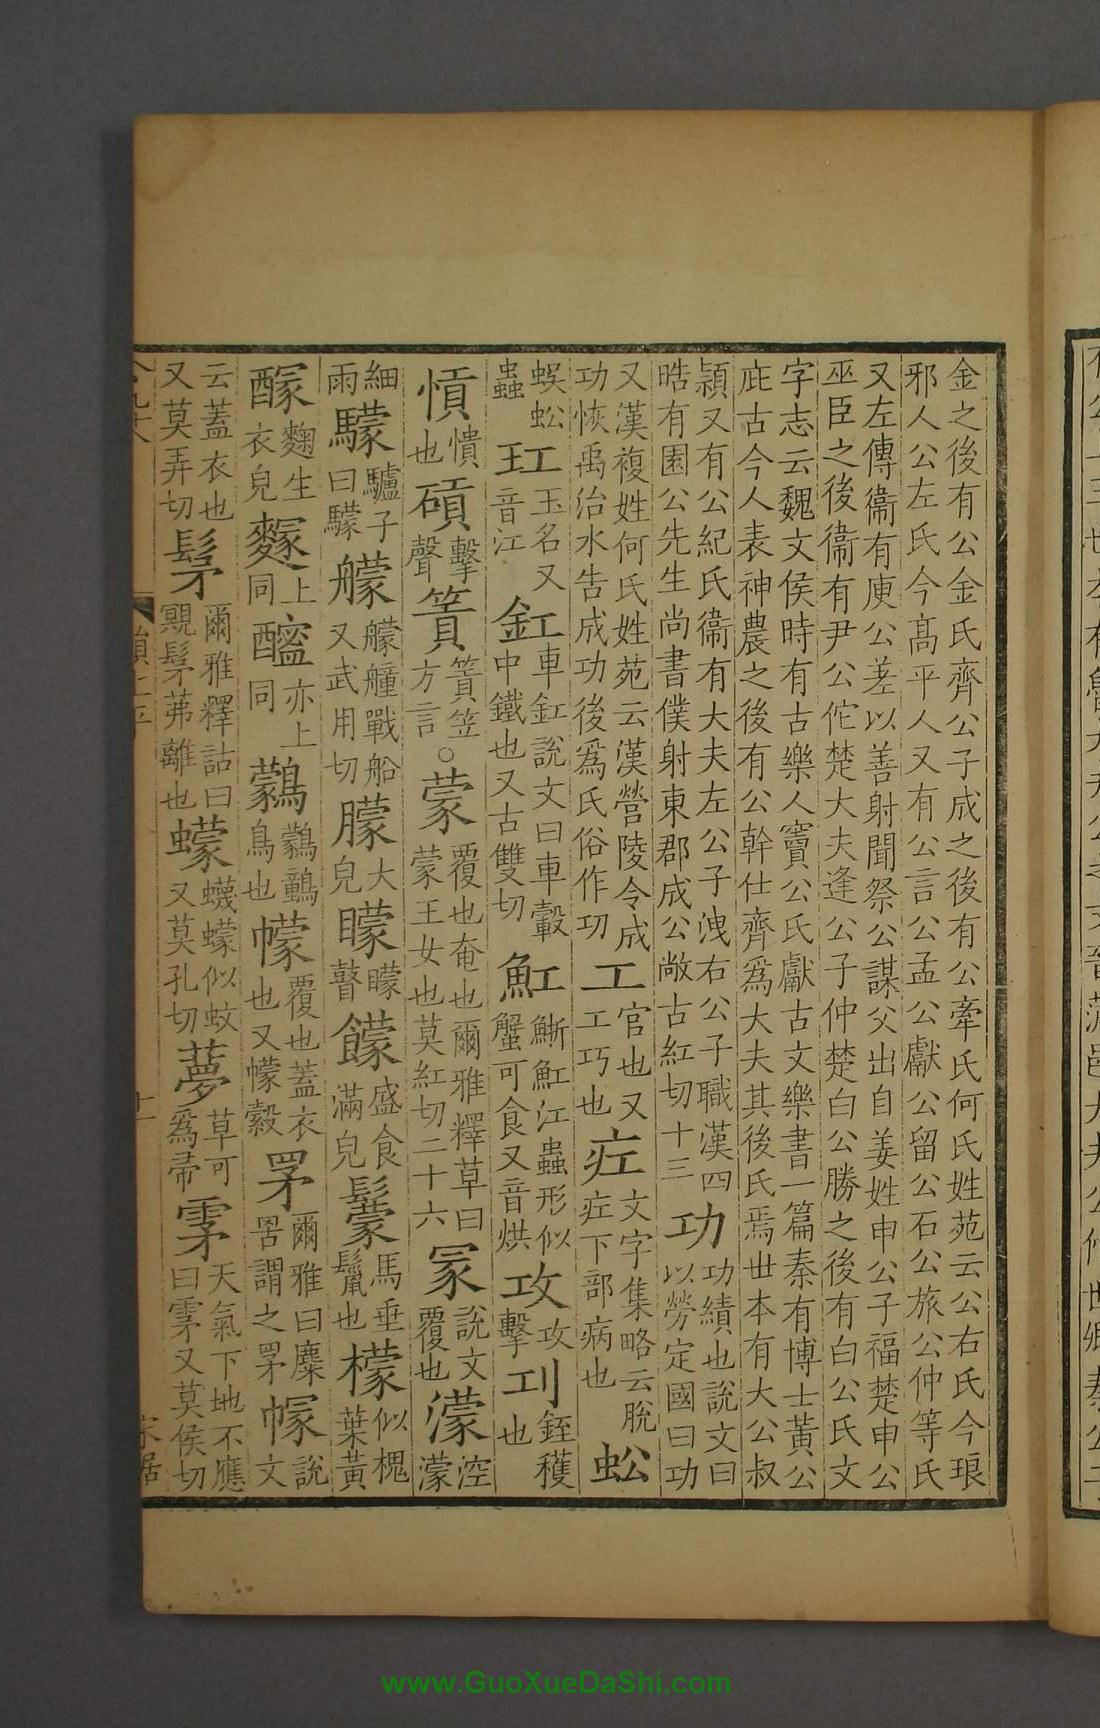 金之後有公金氏齊公子成之後有公牽氏何氏姓苑云公右氏今琅
邪人公左氏今髙平人又有公言公孟公獻公留公石公旅公仲等氏
又左傳衞有庾公差以善射聞祭公謀父出自姜姓申公子福楚申公
巫臣之後衞有尹公佗楚大夫逢公子仲楚白公勝之後有白公氏文
字志云魏文侯時有古樂人竇公氏獻古文樂書一篇秦有博士黃公
庇古今人表神農之後有公幹仕齊爲大夫其後氏焉世本有大公叔
穎又有公紀氏衞有大夫左公子洩右公子職漢四晧有園公先生尚書僕射東郡成公敞古紅切十三 功 功績也說文曰以勞定國曰功
又漢複姓何氏姓苑云漢營陵令成功恢禹治水告成功後爲氏俗作功 工 官也又工巧也 疘 文字集略云脫疘下部病也 蚣
蜈蚣蟲 玒 玉名又音江 釭 車釭說文曰車轂中鐵也又古雙切 魟 魟江蟲形似蟹可食又音烘 攻 攻擊 㓚 銍穫也
愩 憒也 碽 擊聲 篢 篢笠方言 ○ 蒙 覆也奄也爾雅釋草曰蒙王女也莫紅切二十六 冡 說文覆也 濛 涳濛
細雨 驝 驢子曰驝 艨 艨艟戰船又武用切 朦 大皃 矇 矇瞽 饛 盛食滿皃 鬕 馬垂鬣也 檬 似槐葉黃
醾 麴生衣皃 䴿 上同 醯 亦上同 鸏 鸏鶋鳥也 幪 覆也蓋衣也又幪縠 罞 爾雅曰麋罟謂之罞 幏 說文
云蓋衣也又莫弄切 髳 爾雅釋詁曰覭髳茀離也 蠓 蠛蠓似蚊又莫孔切 夢 草可爲帚 雺 天氣下地不應曰雺又莫侯切
www.GuoXueDaShi.com